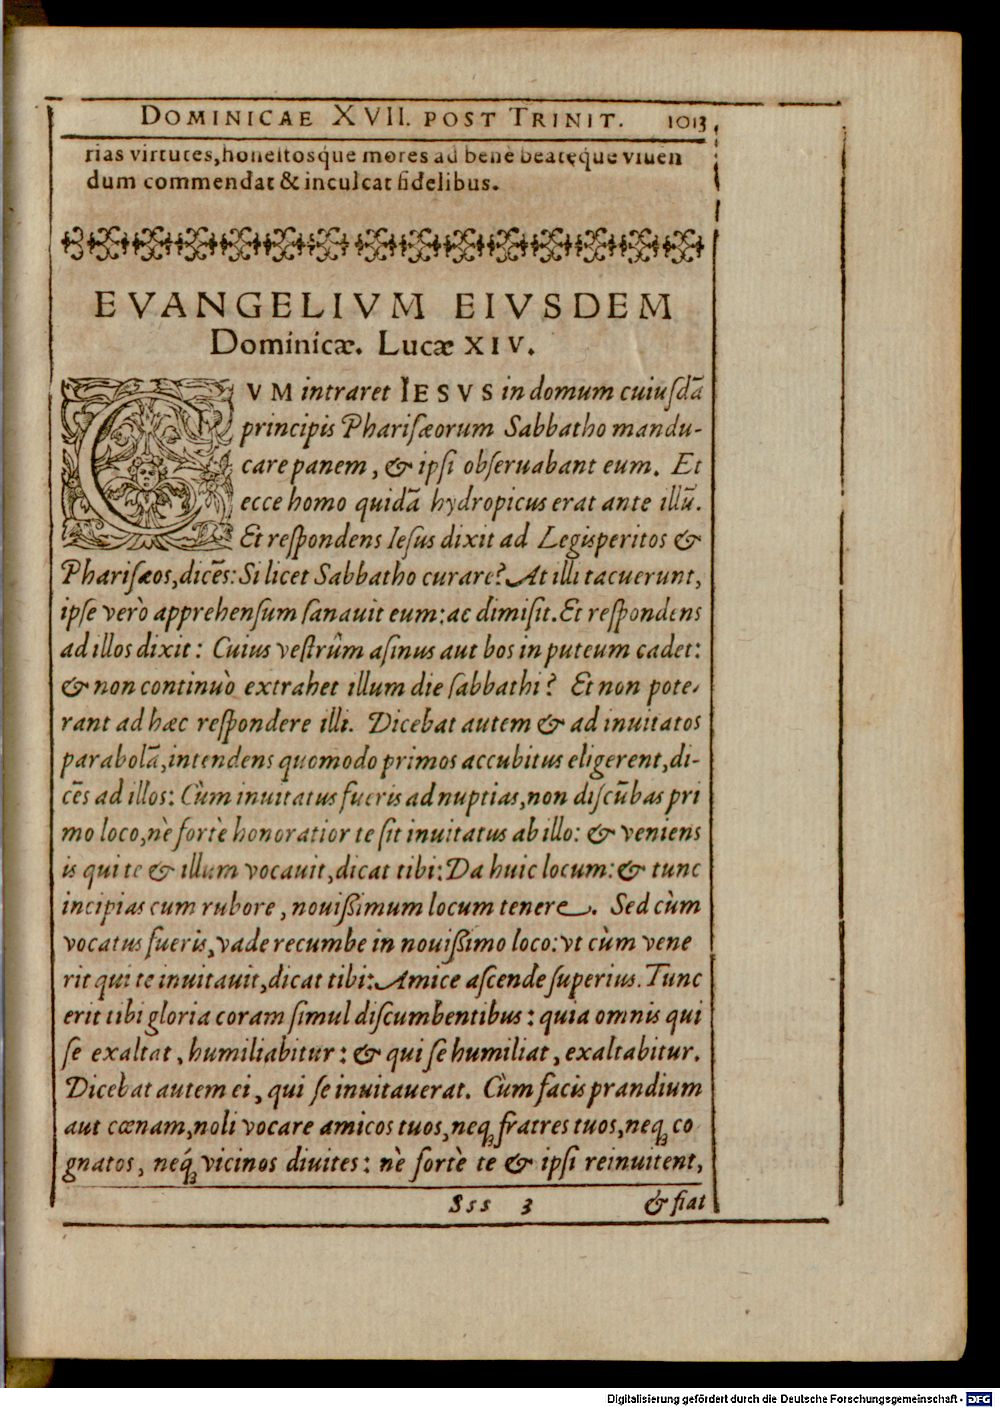 DOMINICAE XVII. POST TRINIT. 1013
rias virtutes, honestosq́ue mores ad benè beatęque viuen
dum commendat & inculcat fidelibus.
EVANGELIVM EIVSDEM
Dominicæ. Lucæ XIV.
CVM intraret IESVS in domum cuiuſdā
principis Phariſæorum Sabbatho mandu-
care panem, & ipſi obſeruabant eum. Et
ecce homo quidā hydropicus erat ante illū.
Et reſpondens Ieſus dixit ad Legisperitos &
Phariſæos, dicēs: Si licet Sabbatho curare? At illi tacuerunt,
ipſe verò apprehenſum ſanauit eum: ac dimiſit. Et reſpondens
ad illos dixit: Cuius veſtrûm aſinus aut bos in puteum cadet:
& non continuò extrahet illum die ſabbathi? Et non pote-
rant ad hæc reſpondere illi. Dicebat autem & ad inuitatos
parabolā, intendens quomodo primos accubitus eligerent, di-
cēs ad illos: Cùm inuitatus fueris ad nuptias, non diſcūbas pri
mo loco, nè fortè honoratior te ſit inuitatus ab illo: & veniens
is qui te & illum vocauit, dicat tibi: Da huic locum: & tunc
incipias cum rubore, nouiſſimum locum tenere. Sed cùm
vocatus fueris, vade recumbe in nouiſſimo loco: vt cùm vene
rit qui te inuitauit, dicat tibi: Amice aſcende ſuperius. Tunc
erit tibi gloria coram ſimul diſcumbentibus: quia omnis qui
ſe exaltat, humiliabitur: & qui ſe humiliat, exaltabitur.
Dicebat autem ei, qui ſe inuitauerat. Cùm facis prandium
aut cœnam, noli vocare amicos tuos, neqꝫ fratres tuos, neqꝫ co
gnatos, neq́ꝫ vicinos diuites: nè fortè te & ipſi reinuitent,
Sss 3 & fiat
Digitalisierung gefördert durch die Deutsche Forschungsgemeinschaft - DFG